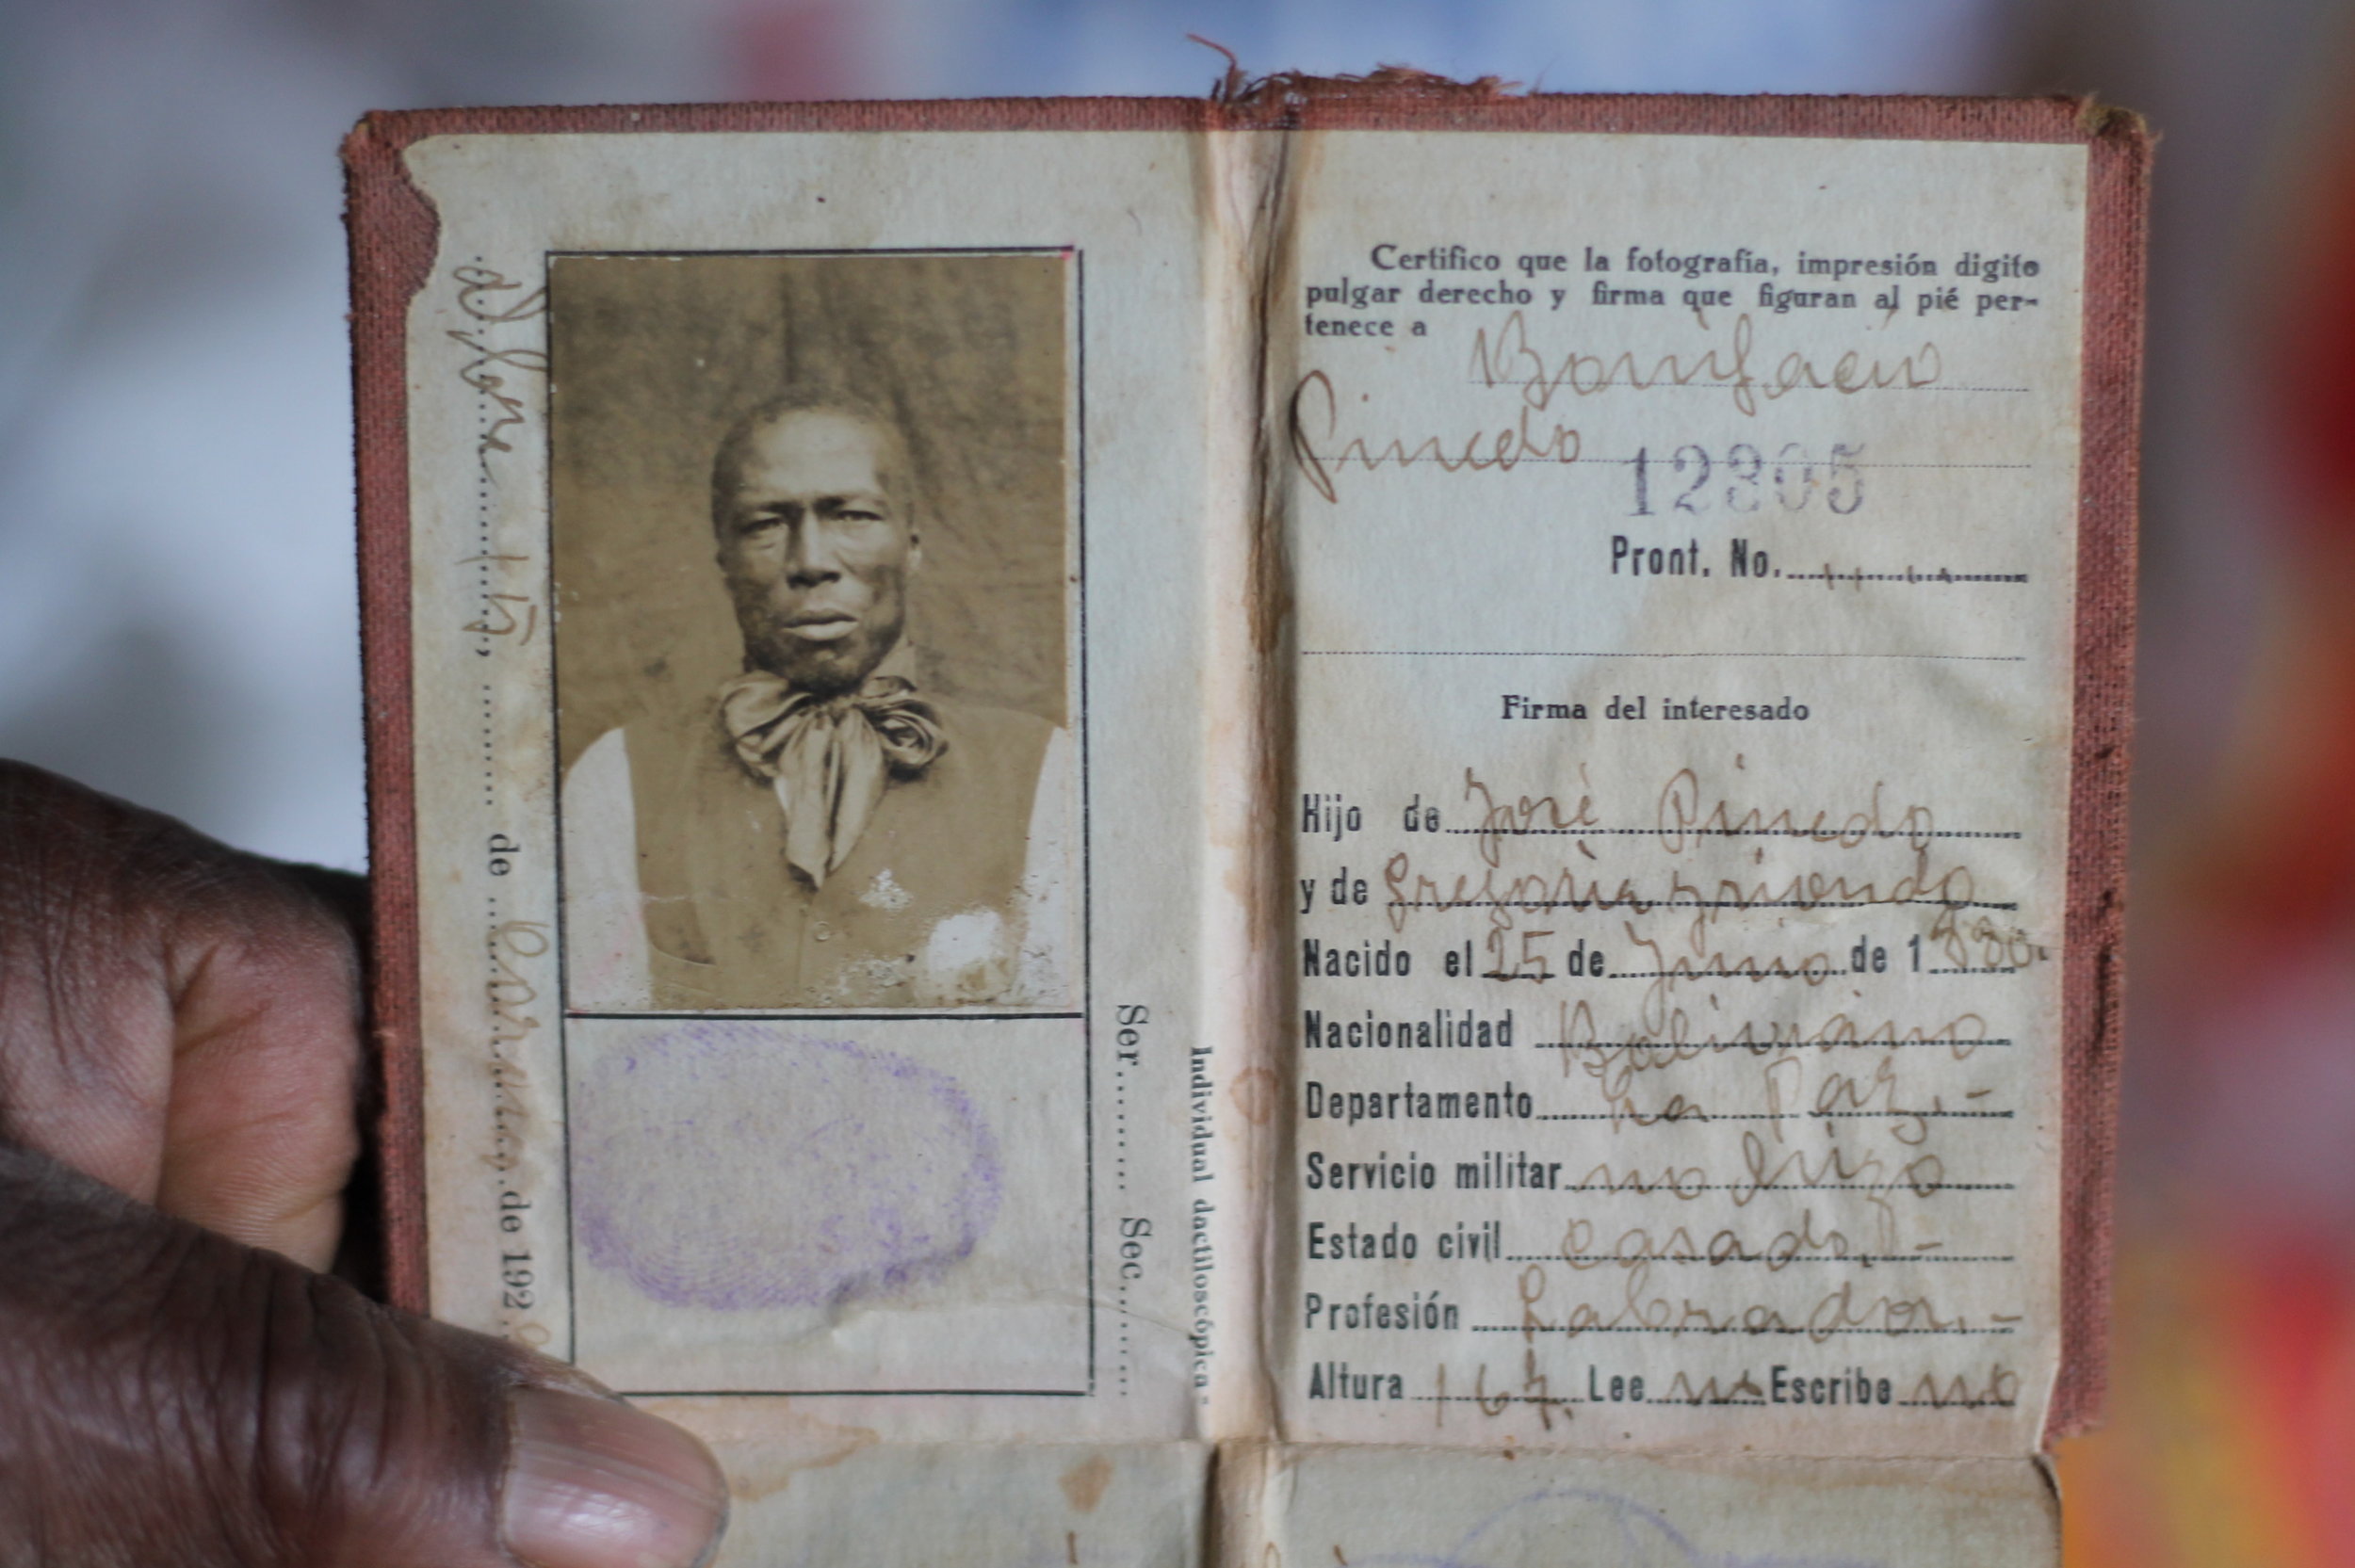 de
de 192
Ser. Sec.
Individual dactiloscópica
Certifico que la fotografía, impresión digito
pulgar derecho y firma que figuran al pié per-
tenece a Bonifacio
Pinedo 12305
Pront. No.
Firma del interesado
Hijo de José Pinedo
y de Gregoria
Nacido el 25 de Junio de 1880.
Nacionalidad Boliviano
Departamento La Paz.-
Servicio militar no hizo
Estado civil casado.-
Profesión Labrador.-
Altura 167. Lee no Escribe no